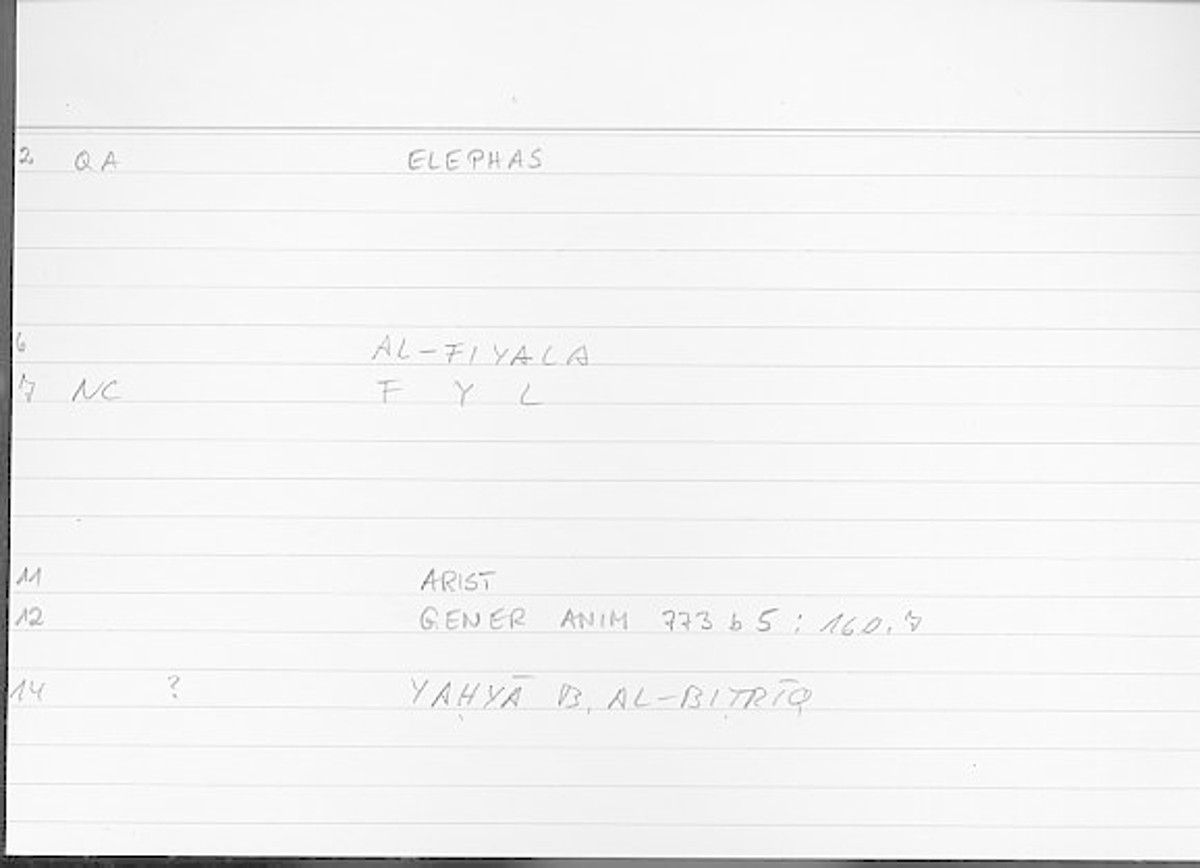 2 QA ELEPHAS
6 AL-FIYALA
7 NC F Y L
11 ARIST
12 GENER ANIM 773 b 5 : 160.7
14 ? YAḤYĀ B. AL-BIṬRĪQ